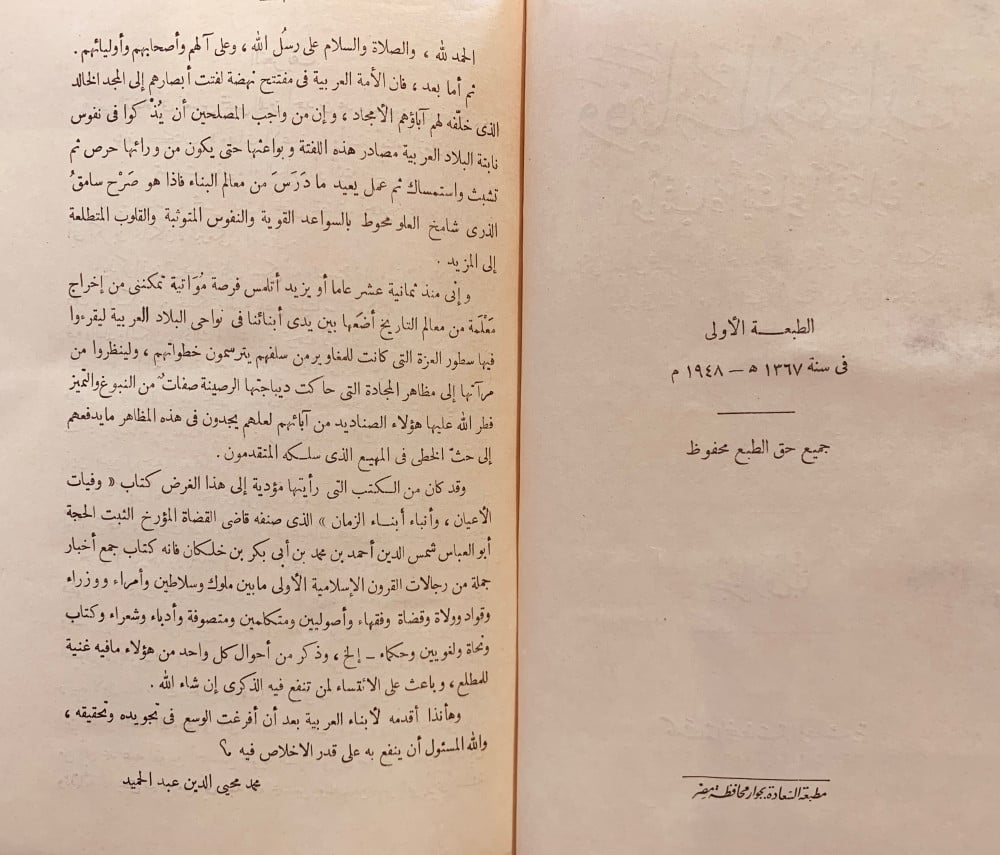 الطبعة الأولى
فى سنة ١٣٦٧ ه – ١٩٤٨ م
جميع حق الطبع محفوظ
مطبعة السعادة بجوار محافظة مصر
الحمد لله ، والصلاة والسلام على رسُل الله ، وعلى آلهم وأصحابهم وأوليائهم .
ثم أما بعد ، فان الأمة العربية فى مفتتح نهضة لفتت أبصارهم إلى المجد الخالد
الذى خلّفه لهم آباؤهم الأمجاد ، وإن من واجب المصلحين أن يُذْكوا فى نفوس
نابتة البلاد العربية مصادر هذه اللفتة وبواعثها حتى يكون من ورائها حرص ثم
تشبث واستمساك ثم عمل يعيد ما دَرَسَ من معالم البناء فاذا هو صَرْح سامقُ
الذرى شامخ العلو محوط بالسواعد القوية والنفوس المتوثبة والقلوب المتطلعة
إلى المزيد .
وإنى منذ ثمانية عشر عاما أو يزيد أتلمس فرصة مُوَاتية تمكننى من إخراج
مَعْلَمة من معالم التاريخ أضَعها بين يدى أبنائنا فى نواحى البلاد العربية ليقرءوا
فيها سطور العزة التى كانت للمغاوير من سلفهم يترسمون خطواتهم ، ولينظروا من
مرآتها إلى مظاهر المجادة التى حاكت ديباجتها الرصينة صفاتٌ من النبوغ والتميز
فطر الله عليها هؤلاء الصناديد من آبائهم لعلهم يجدون فى هذه المظاهر ما يدفعهم
إلى حثّ الخطى فى المهيع الذى سلكه المتقدمون .
وقد كان من الكتب التى رأيتها مؤدية إلى هذا الغرض كتاب « وفيات
الأعيان ، وأنباء أبناء الزمان » الذى صنفه قاضى القضاة المؤرخ الثبت الحجة
أبو العباس شمس الدين أحمد بن محمد بن أبى بكر بن خلكان فانه كتاب جمع أخبار
جملة من رجالات القرون الإسلامية الأولى ما بين ملوك وسلاطين وأمراء ووزراء
وقواد وولاة وقضاة وفقهاء وأصوليين ومتكلمين ومتصوفة وأدباء وشعراء وكتاب
ونحاة ولغويين وحكماء – إلخ ، وذكر من أحوال كل واحد من هؤلاء مافيه غنية
للمطلع ، وباعث على الائتساء لمن تنفع فيه الذكرى إن شاء الله .
وهأنذا أقدمه لأبناء العربية بعد أن أفرغت الوسع فى تجويده وتحقيقه ،
والله المسئول أن ينفع به على قدر الاخلاص فيه
محمد محيى الدين عبد الحميد